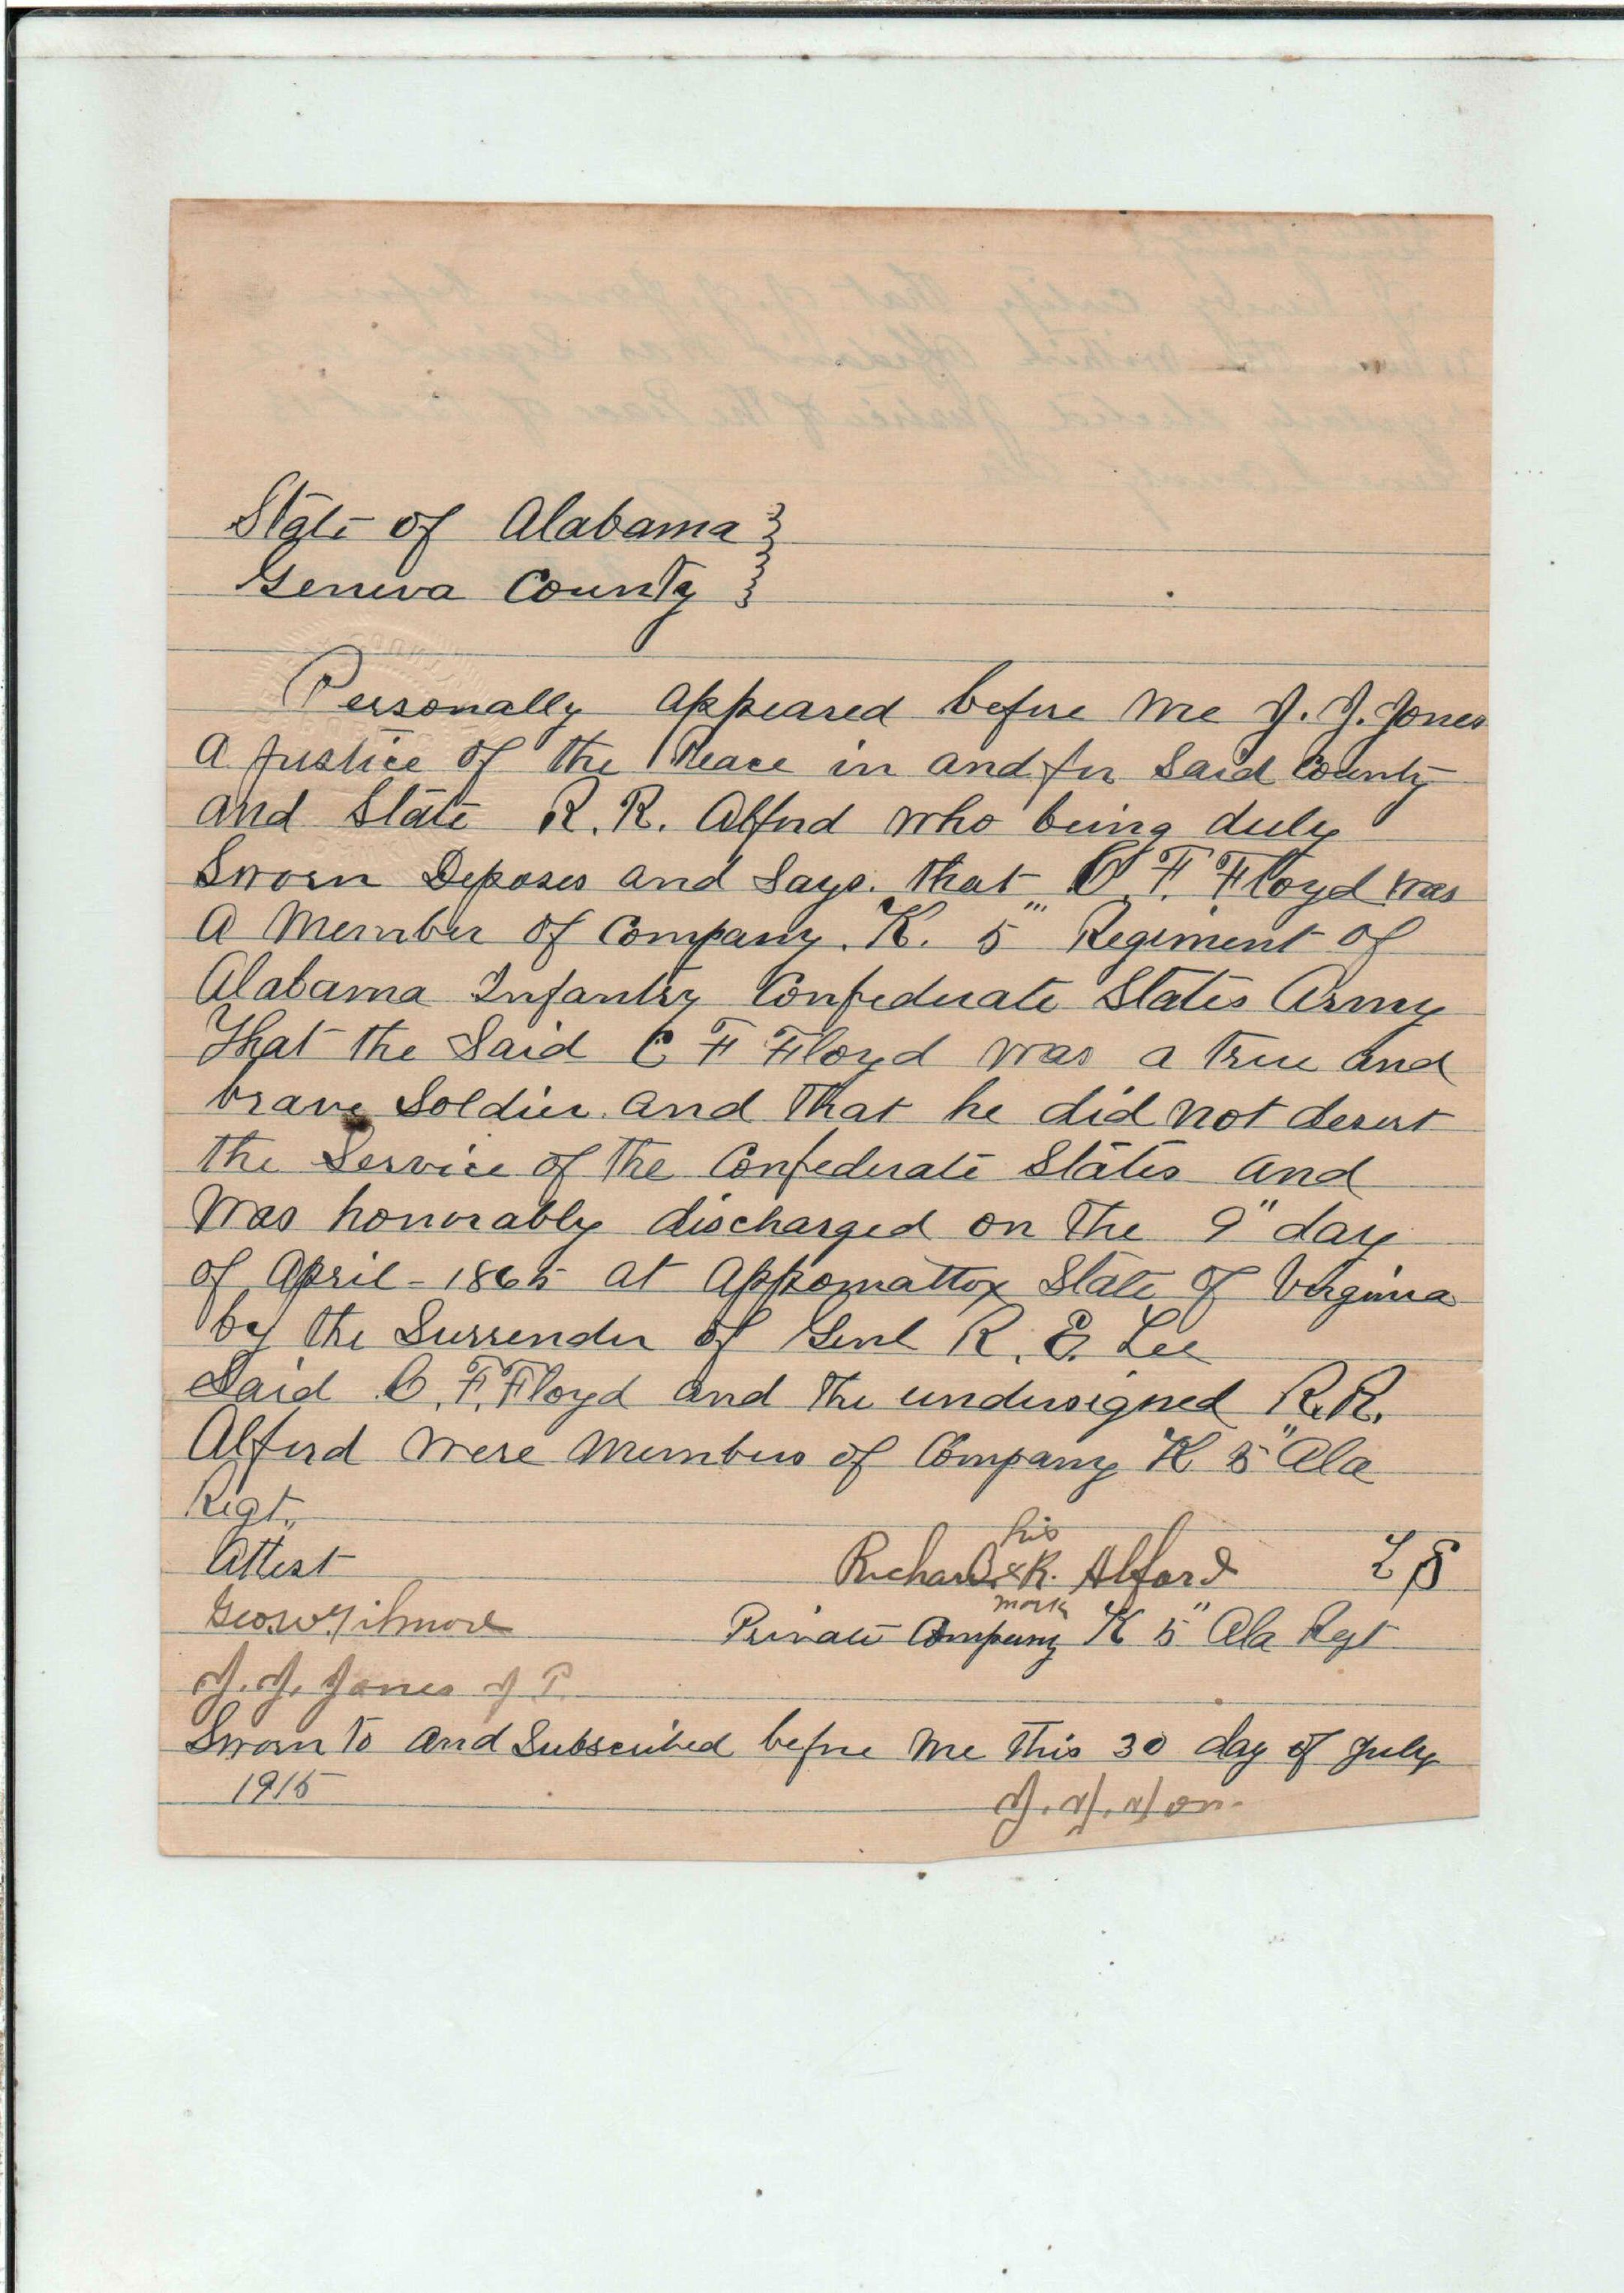 State of Alabama }
Geneva County }
Personally appeared before me J. J. Jones
a Justice of the Peace in and for Said County
and State R. R. Alford who being duly
Sworn Deposes and Says. that C. F. Floyd was
a Member of Company. K. 5''' Regiment of
Alabama Infantry Confederate States Army
That the Said C F Floyd was a true and
brave Soldier and that he did not desert
the Service of the Confederate States and
was honorably discharged on the 9" day
of April - 1865 at Appomattox State of Virginia
by the Surrender of Genl R. E. Lee
Said C. F. Floyd and the undersigned R.R.
Alford were members of Company "K 5" Ala
Regt.
Attest
his
Richard x R. Alford L S
mark
Geo W Gilmore
Private Company K 5" Ala Regt
J. J. Jones J P.
Sworn to and Subscribed before me this 30 day of July
1915
J. J. Jon